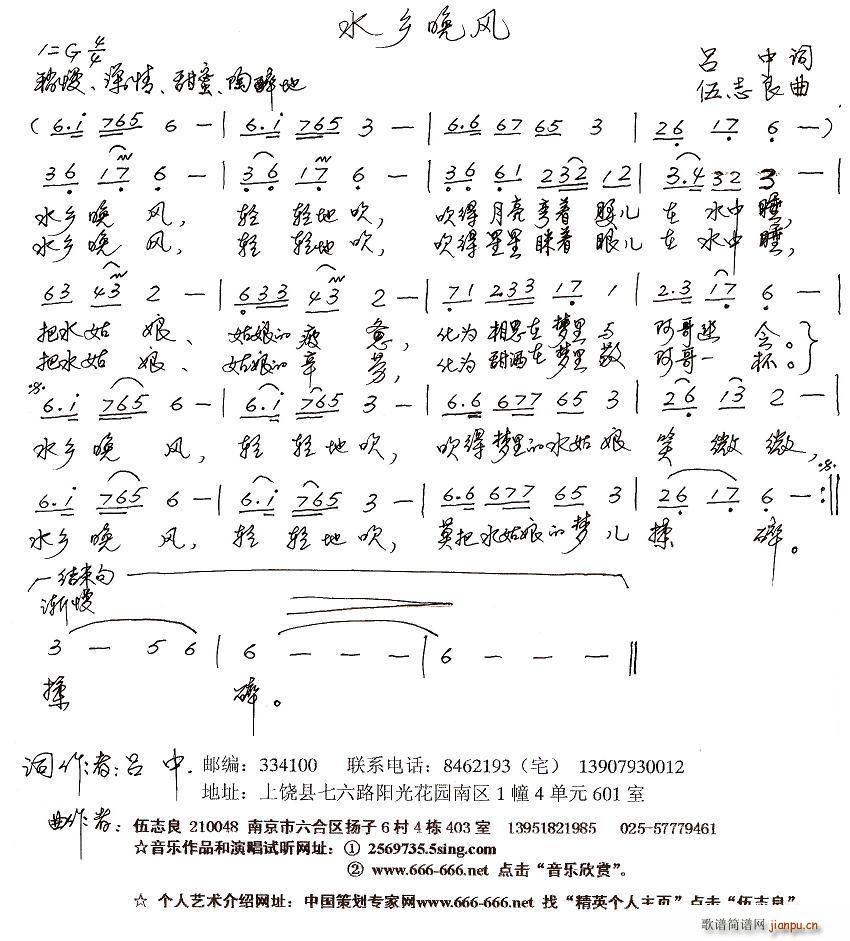 水乡晚风
1=G 4/4
吕中词
稍慢、深情、甜蜜、陶醉地
伍志良曲
(6.i 765 6 - | 6.i 765 3 - | 6.6 67 65 3 | 26 17 6 -)
36 17 6 - | 36 17 6 - | 36 61 232 12 | 3.4 32 3 - |
水乡晚风，轻轻地吹，吹得月亮弯着腰儿在水中睡，
水乡晚风，轻轻地吹，吹得星星眯着眼儿在水中睡，
63 43 2 - | 633 43 2 - | 71 233 17 1 | 2.3 17 6 - |
把水姑娘、姑娘的疲惫，化为相思在梦里与阿哥幽会。
把水姑娘、姑娘的辛劳，化为甜酒在梦里敬阿哥一杯。
6.i 765 6 - | 6.i 765 3 - | 6.6 677 65 3 | 26 13 2 - |
水乡晚风，轻轻地吹，吹得梦里的水姑娘笑微微，
6.i 765 6 - | 6.i 765 3 - | 6.6 677 65 3 | 26 17 6 - :||
水乡晚风，轻轻地吹，莫把水姑娘的梦儿揉碎。
结束句
渐慢
3 - 5 6 | 6 - - - | 6 - - - ||
揉碎。
词作者：吕中. 邮编：334100 联系电话：8462193（宅） 13907930012
地址：上饶县七六路阳光花园南区1幢4单元601室
曲作者：伍志良 210048 南京市六合区扬子6村4栋403室 13951821985 025-57779461
☆音乐作品和演唱试听网址：① 2569735.5sing.com
② www.666-666.net 点击“音乐欣赏”。
☆ 个人艺术介绍网址：中国策划专家网www.666-666.net 找“精英个人主页”点击“伍志良”
歌谱简谱网 jianpu.cn